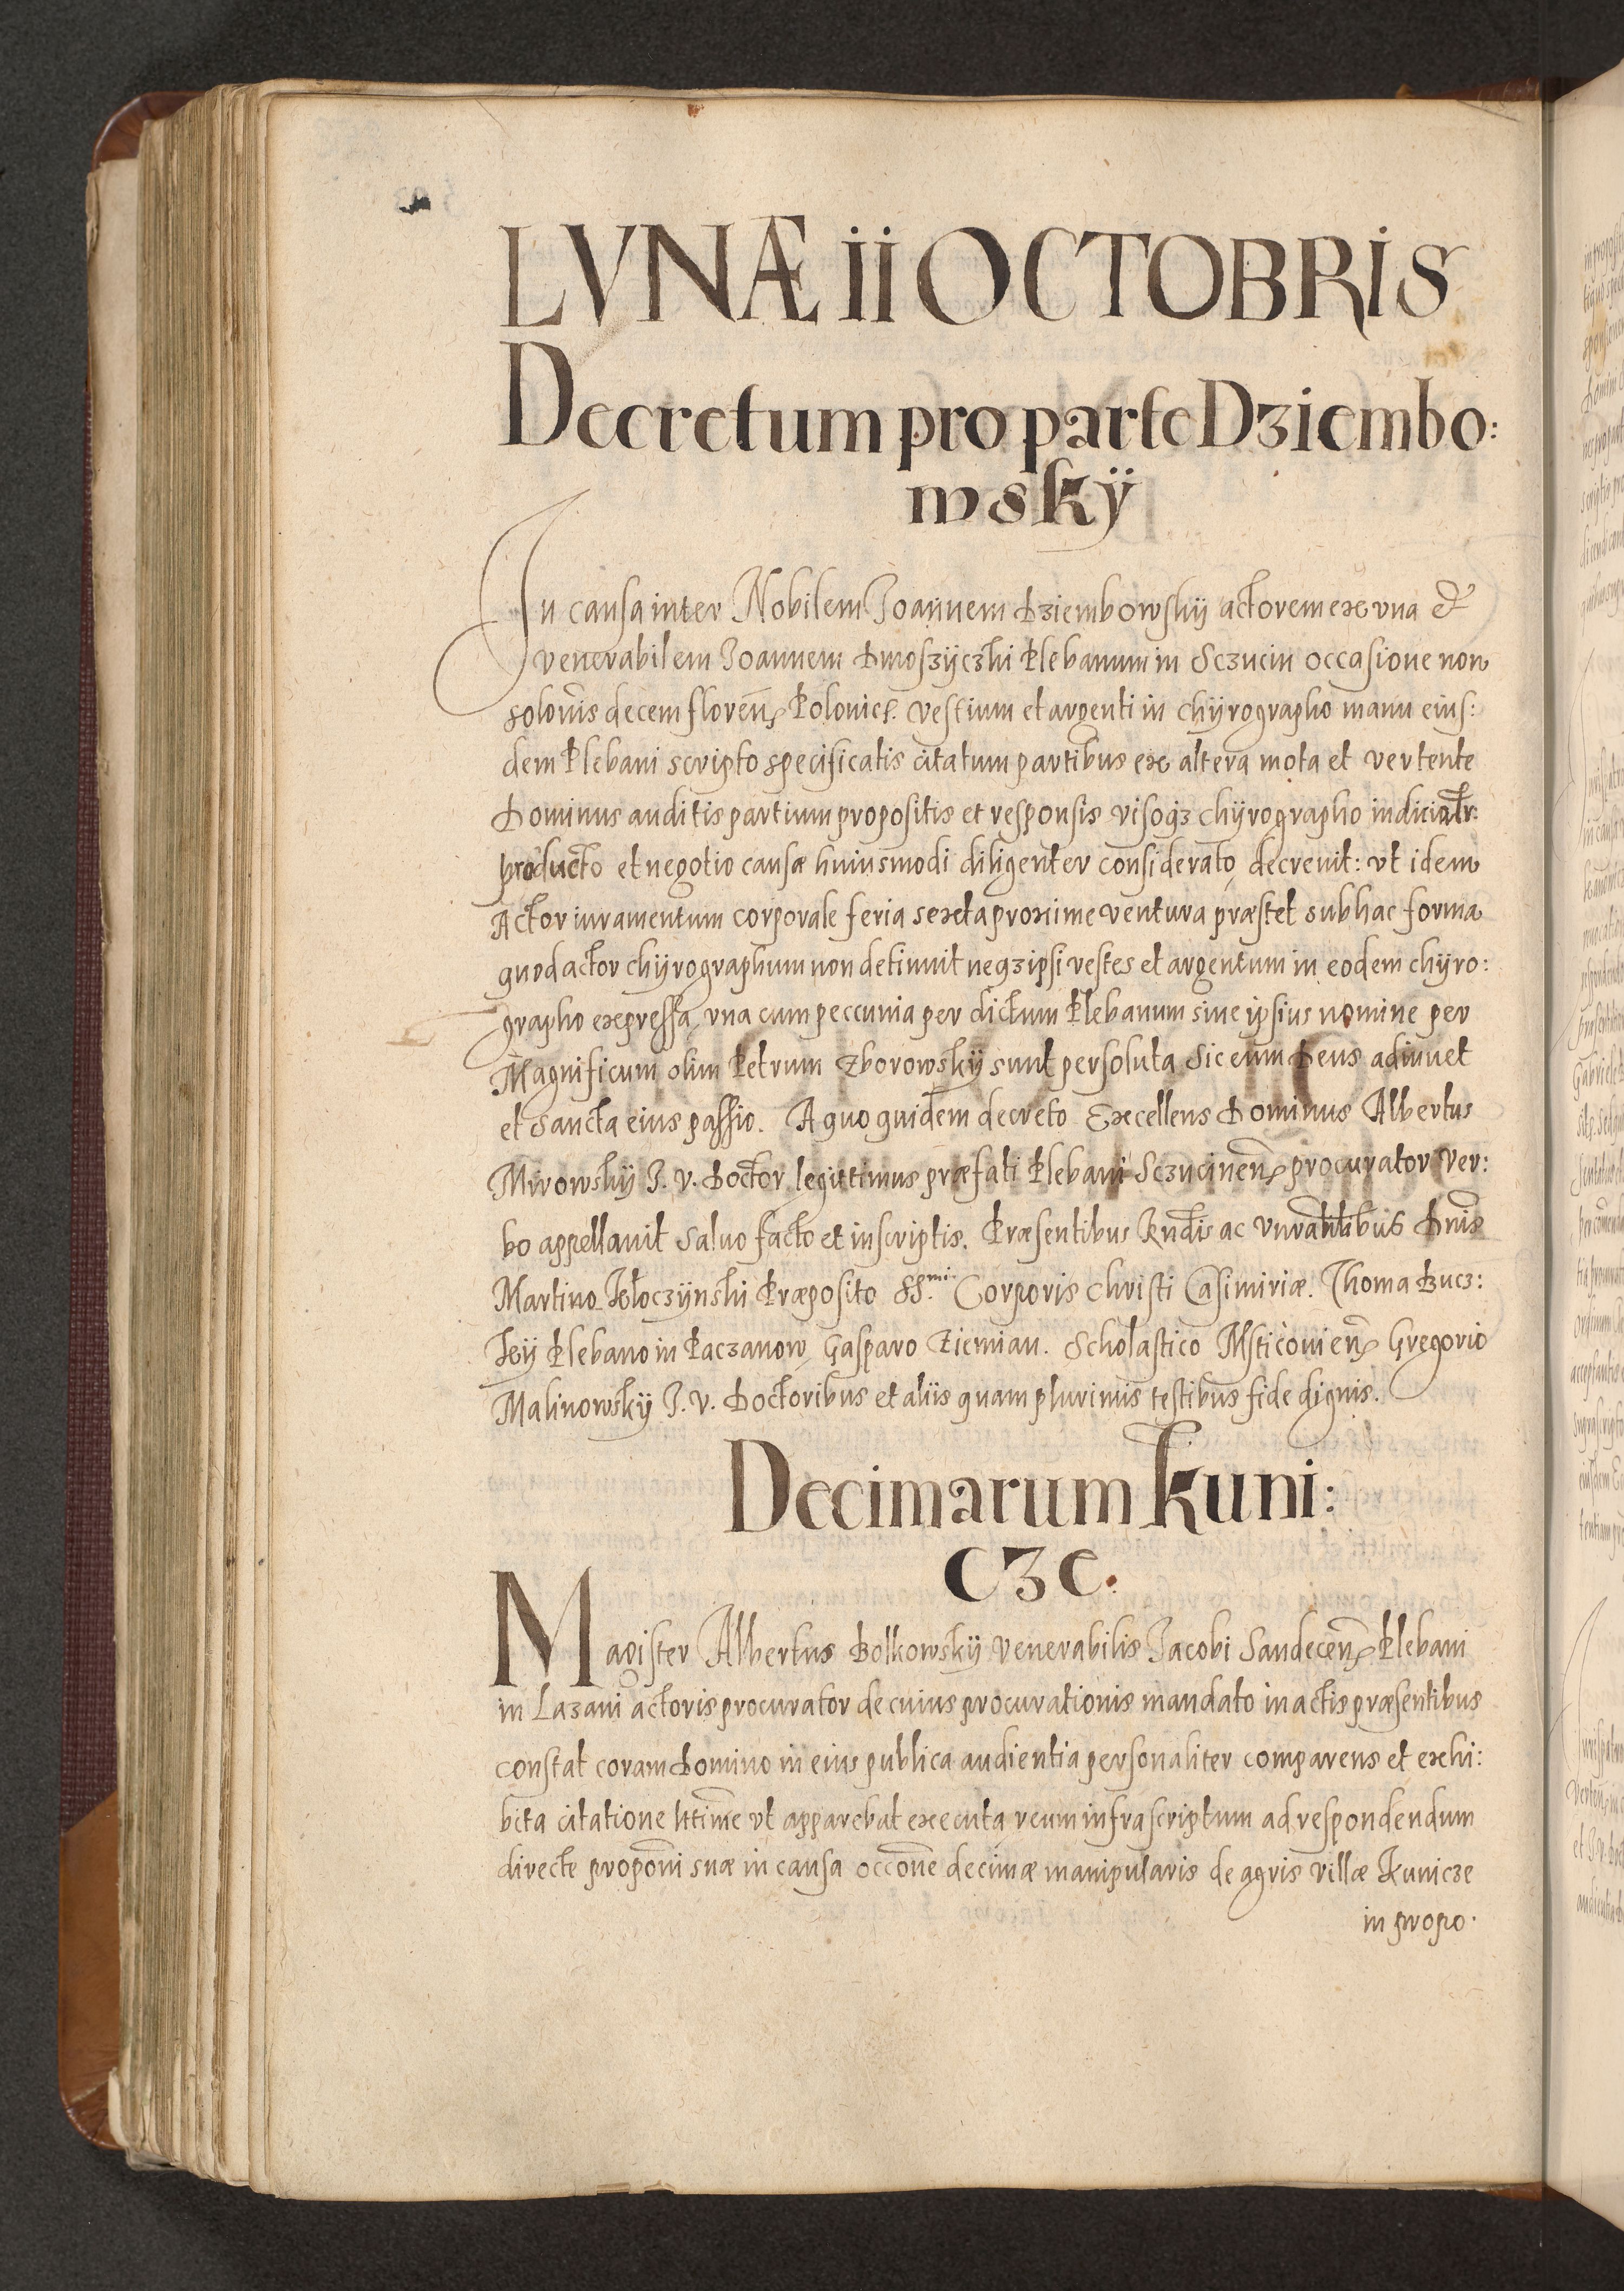 LVNÆ ii OCTOBRIS
Decretum pro parte Dziembo:
wskÿ
In causa inter Nobilem Joannem Dziembowskÿ actorem ex vna &
venerabilem Joannem Dmoszÿczki Plebanum in Sczucin occasione non
solōnis decem floren̄ Polonic. vestium et argenti in chÿrographo manu eius:
dem Plebani scripto specificatis citatum partibus ex altera mota et vertente
Dominus auditis partium propositis et responsis visoqʒ chÿrographo indicialr̄.
producto et negotio causæ huiusmodi diligenter considerato, decreuit: vt idem
Actor iuramentum corporale feria sexta proxime ventura præstet sub hac forma
quod actor chÿrographum non detinuit neqʒ ipsi vestes et argentum in eodem chÿro:
grapho expressa, vna cum peccunia per dictum Plebanum siue ipsius nomine per
Magnificum olim Petrum Zborowskÿ sunt persoluta sic eum Deus adiuuet
et sancta eius passio. A quo quidem decreto Excellens Dominus Albertus
Mirowskÿ J. V. Doctor legittimus præfati Plebani Sczucinen̄ procurator ver:
bo appellauit saluo facto et inscriptis. Præsentibus Rndis ac vnrabilibus Dnis
Martino Kłoczÿnski Præposito SS.mi Corporis Christi Casimiriæ. Thoma Bucz:
kÿ Plebano in Paczanow, Gasparo Ziemian. Scholastico Msticouien̄ Gregorio
Malinowskÿ J. V. Doctoribus et aliis quam plurimis testibus fide dignis.
Decimarum kuni:
cze.
Magister Albertus Bolkowskÿ venerabilis Jacobi Sandecen̄ Plebani
in Lazani actoris procurator de cuius procurationis mandato in actis præsentibus
constat coram Domino in eius publica audientia personaliter comparens et exhi:
bita citatione lttime vt apparebat executa reum infrascriptum ad respondendum
directe proponi suæ in causa occone decimæ manipularis de agris villæ Kunicze
in propo.